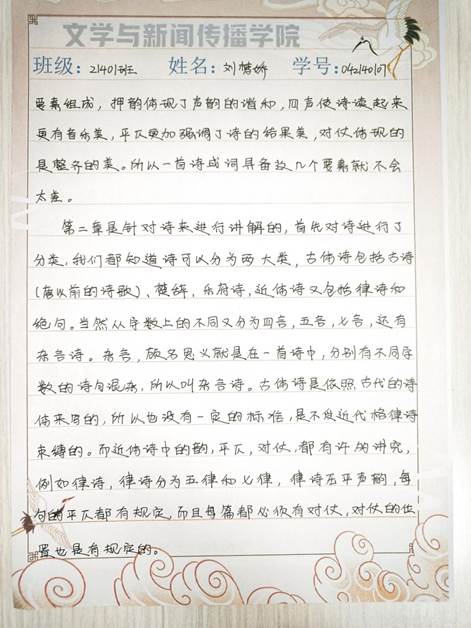 文学与新闻传播学院
班级：21401班 姓名：刘梦娇 学号：042140107
要素组成，押韵体现了声韵的谐和，四声使诗读起来
更有音乐美，平仄更加强调了诗的结果美，对仗体现的
是整齐的美。所以一首诗或词具备这几个要素就不会
太差。
第二章是针对诗来进行讲解的，首先对诗进行了
分类，我们都知道诗可以分为两大类，古体诗包括古诗
（唐以前的诗歌）、楚辞，乐府诗，近体诗又包括律诗和
绝句。当然从字数上的不同又分为四言，五言，七言，还有
杂言诗。杂言，顾名思义就是在一首诗中，分别有不同字
数的诗句混杂，所以叫杂言诗。古体诗是依照古代的诗
体来写的，所以也没有一定的标准，是不受近代格律诗
束缚的。而近体诗中的韵，平仄，对仗，都有许多讲究，
例如律诗，律诗分为五律和七律，律诗压平声韵，每
句的平仄都有规定，而且每篇都必须有对仗，对仗的位
置也是有规定的。